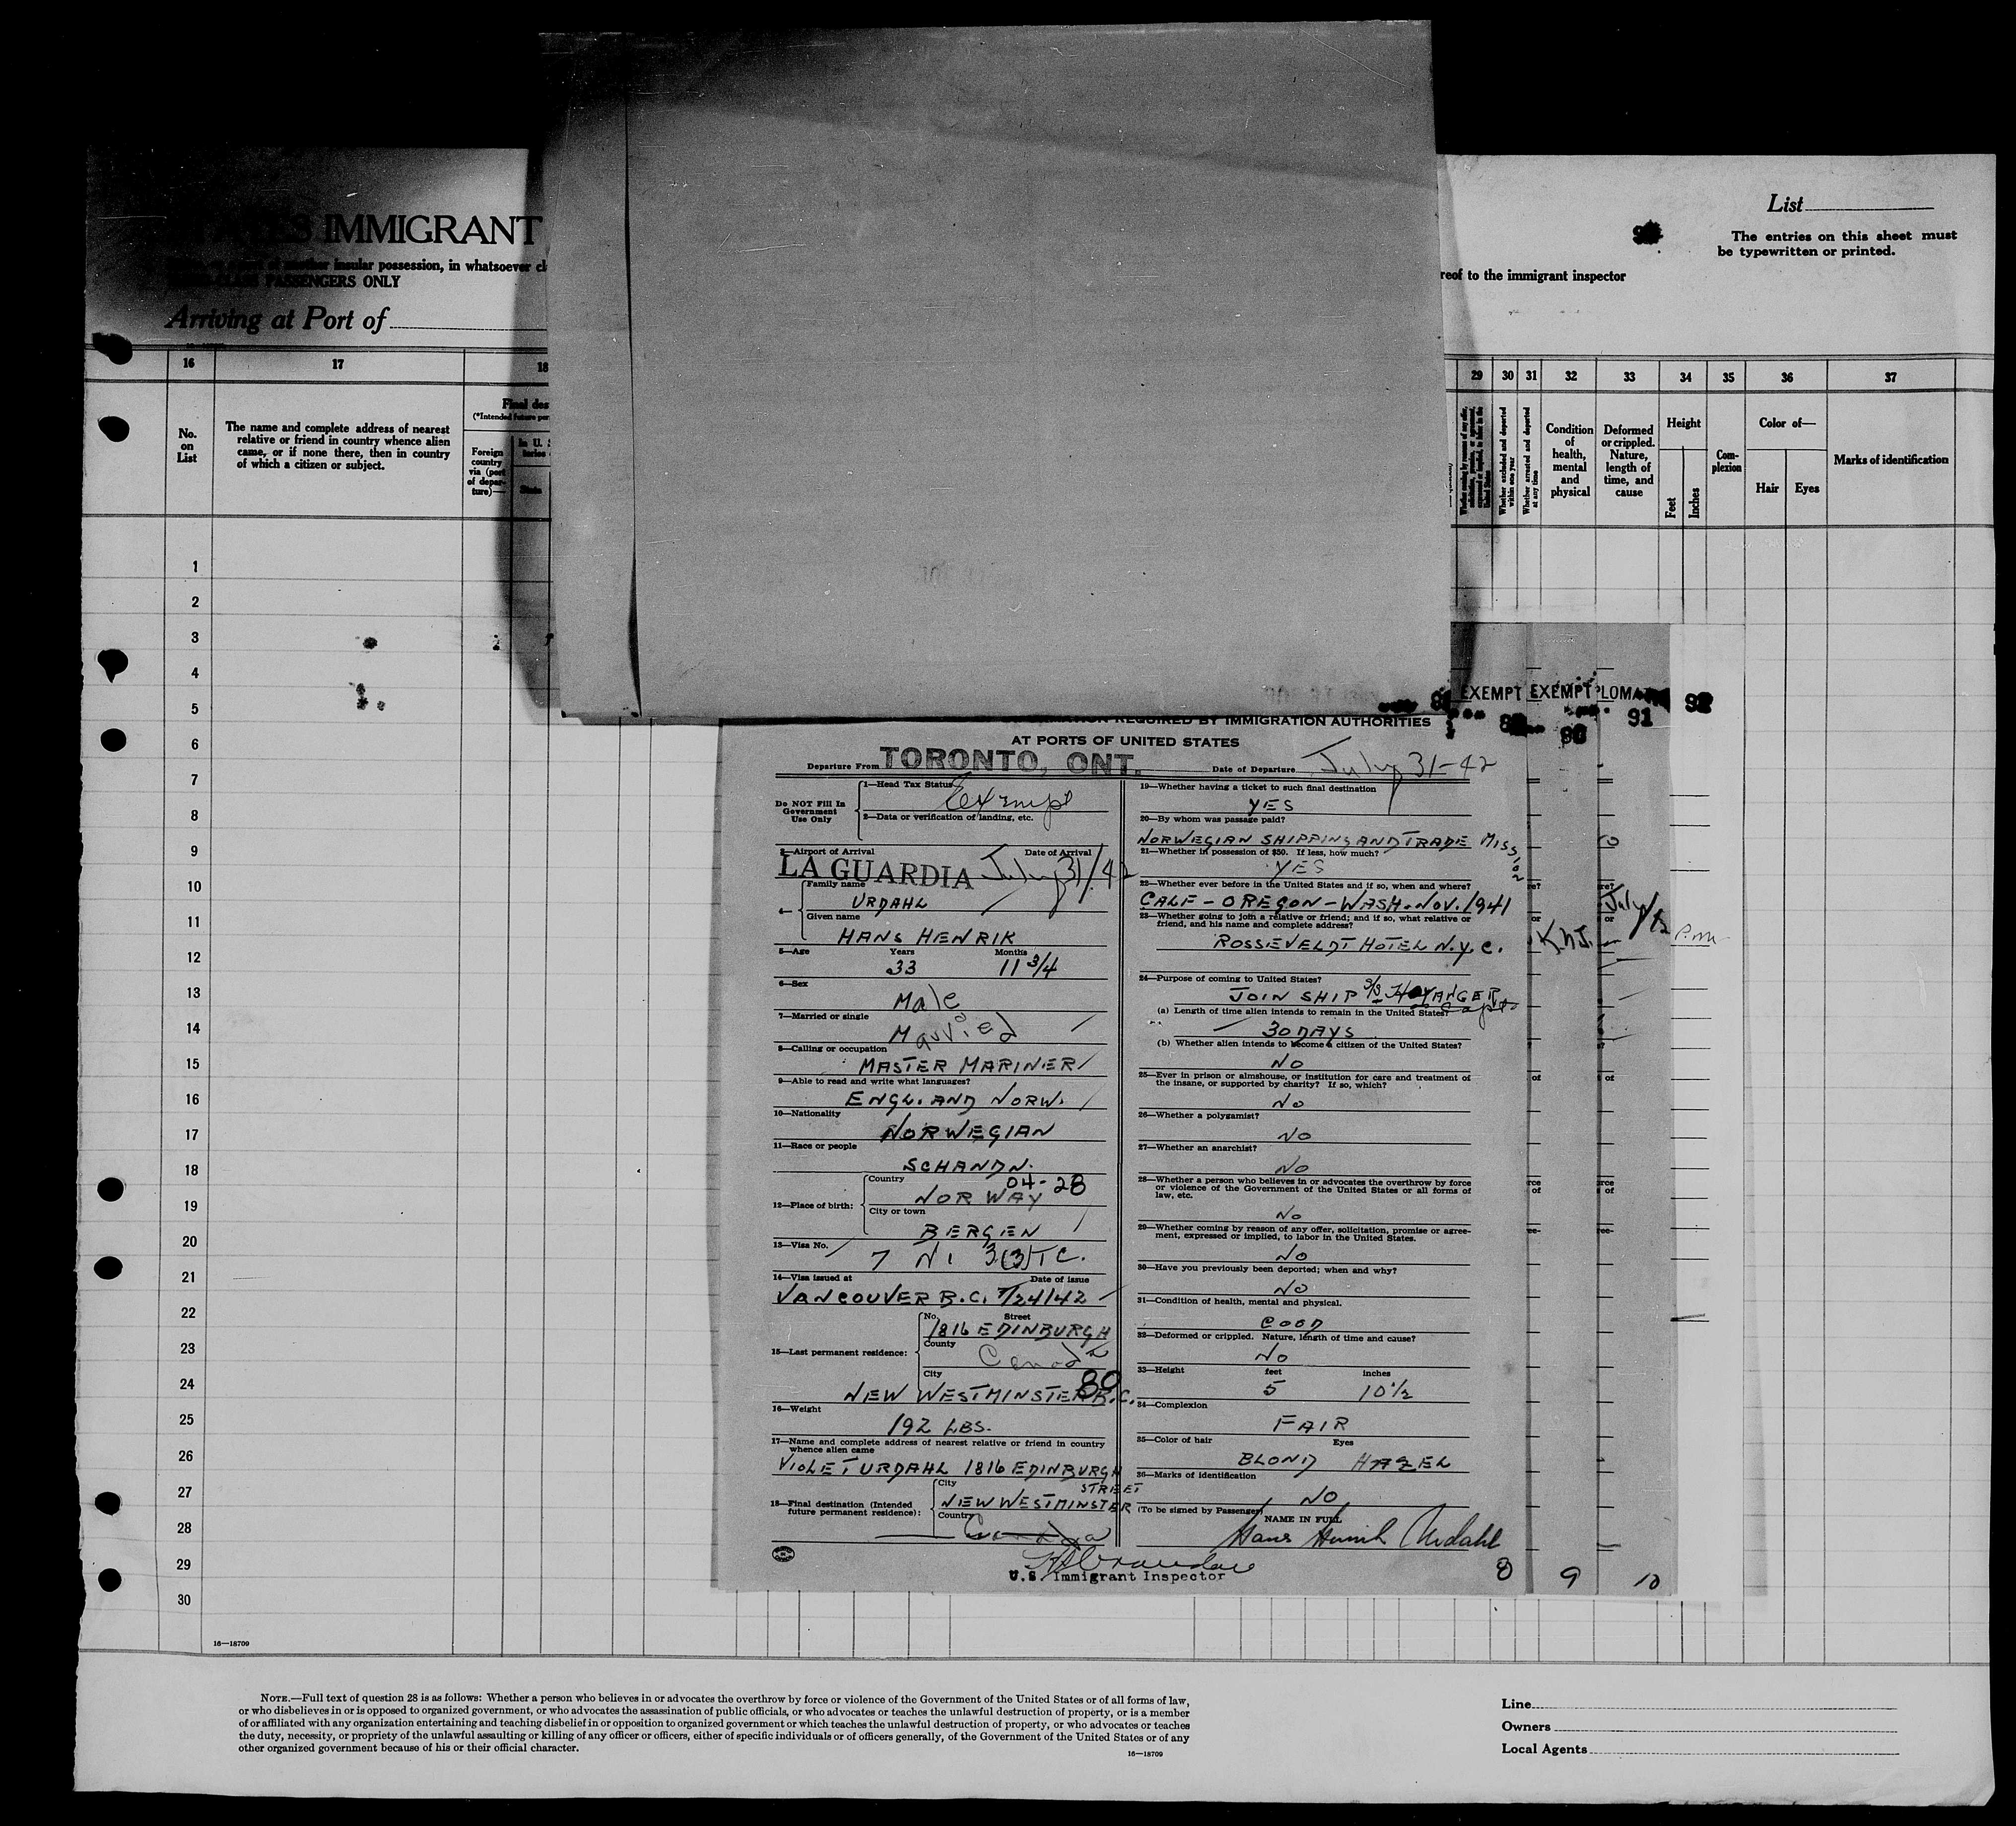 IMMIGRANT
insular possession, in whatsoever cl
PASSENGERS ONLY
Arriving at Port of
List
The entries on this sheet must
be typewritten or printed.
reof to the immigrant inspector
16 17 18
29 30 31 32 33 34 35 36 37
No.
on
List
The name and complete address of nearest
relative or friend in country whence alien
came, or if none there, then in country
of which a citizen or subject.
Final des
(*Intended future per
Foreign
country
via (port
of depar-
ture)—
In U. S
State
Whether excluded and deported
within one year
Whether arrested and deported
at any time
Condition
of
health,
mental
and
physical
Deformed
or crippled.
Nature,
length of
time, and
cause
Height
Feet
Inches
Com-
plexion
Color of—
Hair Eyes
Marks of identification
1
2
3
4
5
6
7
8
9
10
11
12
13
14
15
16
17
18
19
20
21
22
23
24
25
26
27
28
29
30
16—18709
EXEMPT EXEMPT PLOMA
91 92
90
REQUIRED BY IMMIGRATION AUTHORITIES
AT PORTS OF UNITED STATES
Departure From TORONTO, ONT. Date of Departure July 31-42
Do NOT Fill In
Government
Use Only
1—Head Tax Status Exempt
2—Data or verification of landing, etc.
3—Airport of Arrival Date of Arrival
LA GUARDIA July 31/42
4—
Family name
URDAHL
Given name
HANS HENRIK
5—Age Years Months
33 11 3/4
6—Sex
Male
7—Married or single
Married
8—Calling or occupation
MASTER MARINER
9—Able to read and write what languages?
ENGL. AND NORW.
10—Nationality
NORWEGIAN
11—Race or people
SCHANDN.
12—Place of birth:
Country
04-28
NORWAY
City or town
BERGEN
13—Visa No.
7 NI 3(3) TC.
14—Visa issued at Date of issue
VANCOUVER B.C. 7/24/42
15—Last permanent residence:
No. Street
1816 EDINBURGH
County
Canada
City
80
NEW WESTMINSTER B.C.
16—Weight
192 LBS.
17—Name and complete address of nearest relative or friend in country
whence alien came
VIOLET URDAHL 1816 EDINBURGH
STREET
18—Final destination (Intended
future permanent residence):
City
NEW WESTMINSTER
Country
Canada
U.S Immigrant Inspector
19—Whether having a ticket to such final destination
YES
20—By whom was passage paid?
NORWEGIAN SHIPPING AND TRADE MISSION
21—Whether in possession of $50. If less, how much?
YES
22—Whether ever before in the United States and if so, when and where?
CALF - OREGON - WASH. NOV. 1941
23—Whether going to join a relative or friend; and if so, what relative or
friend, and his name and complete address?
ROSSEVELDT HOTEL N.Y.C.
24—Purpose of coming to United States?
JOIN SHIP S/S HOYANGER
Capt.
(a) Length of time alien intends to remain in the United States?
30 DAYS
(b) Whether alien intends to become a citizen of the United States?
NO
25—Ever in prison or almshouse, or institution for care and treatment of
the insane, or supported by charity? If so, which?
NO
26—Whether a polygamist?
NO
27—Whether an anarchist?
NO
28—Whether a person who believes in or advocates the overthrow by force
or violence of the Government of the United States or all forms of
law, etc.
NO
29—Whether coming by reason of any offer, solicitation, promise or agree-
ment, expressed or implied, to labor in the United States.
NO
30—Have you previously been deported; when and why?
NO
31—Condition of health, mental and physical.
GOOD
32—Deformed or crippled. Nature, length of time and cause?
NO
33—Height feet inches
5 10 1/2
34—Complexion
FAIR
35—Color of hair Eyes
BLOND HAZEL
36—Marks of identification
NO
(To be signed by Passenger)
NAME IN FULL
Hans Henrik Urdahl
8 9 10
NOTE.—Full text of question 28 is as follows: Whether a person who believes in or advocates the overthrow by force or violence of the Government of the United States or of all forms of law,
or who disbelieves in or is opposed to organized government, or who advocates the assassination of public officials, or who advocates or teaches the unlawful destruction of property, or is a member
of or affiliated with any organization entertaining and teaching disbelief in or opposition to organized government or which teaches the unlawful destruction of property, or who advocates or teaches
the duty, necessity, or propriety of the unlawful assaulting or killing of any officer or officers, either of specific individuals or of officers generally, of the Government of the United States or of any
other organized government because of his or their official character.
16—18709
Line
Owners
Local Agents